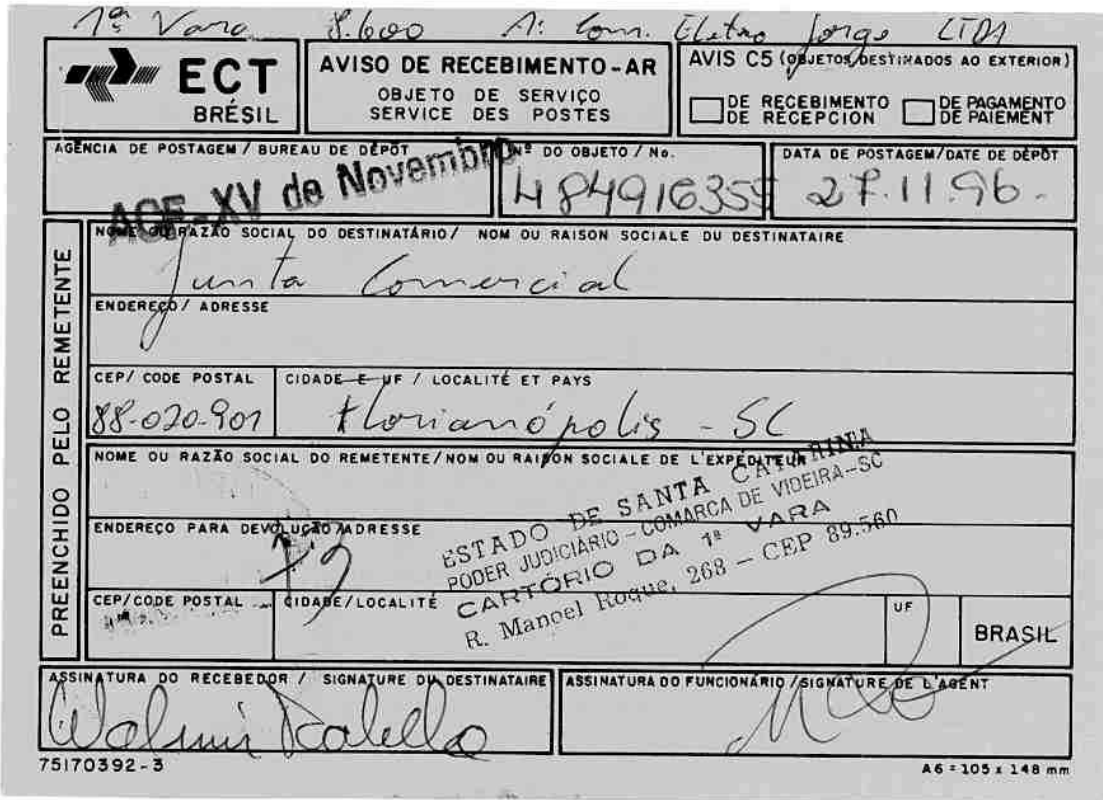 1ª Vara 8.600 A: Com. Eletro Jorge LTDA
ECT
BRÉSIL
AVISO DE RECEBIMENTO-AR
OBJETO DE SERVIÇO
SERVICE DES POSTES
AVIS C5 (OBJETOS DESTINADOS AO EXTERIOR)
DE RECEBIMENTO
DE RECEPCION
DE PAGAMENTO
DE PAIEMENT
AGÊNCIA DE POSTAGEM / BUREAU DE DÉPÔT
ACF-XV de Novembro
Nº DO OBJETO / No.
484916355
DATA DE POSTAGEM/DATE DE DÉPÔT
27.11.96.
PREENCHIDO PELO REMETENTE
NOME OU RAZÃO SOCIAL DO DESTINATÁRIO / NOM OU RAISON SOCIALE DU DESTINATAIRE
Junta Comercial
ENDEREÇO / ADRESSE
CEP/ CODE POSTAL
88-020-901
CIDADE E UF / LOCALITÉ ET PAYS
Florianópolis - SC
NOME OU RAZÃO SOCIAL DO REMETENTE/NOM OU RAISON SOCIALE DE L'EXPÉDITEUR
ENDEREÇO PARA DEVOLUÇÃO/ADRESSE
ESTADO DE SANTA CATARINA
PODER JUDICIÁRIO - COMARCA DE VIDEIRA-SC
CARTÓRIO DA 1ª VARA
R. Manoel Roque, 268 - CEP 89.560
CEP/CODE POSTAL
CIDADE/LOCALITÉ
UF
BRASIL
ASSINATURA DO RECEBEDOR / SIGNATURE DU DESTINATAIRE
ASSINATURA DO FUNCIONÁRIO / SIGNATURE DE L'AGENT
75170392-3
A6 = 105 x 148 mm